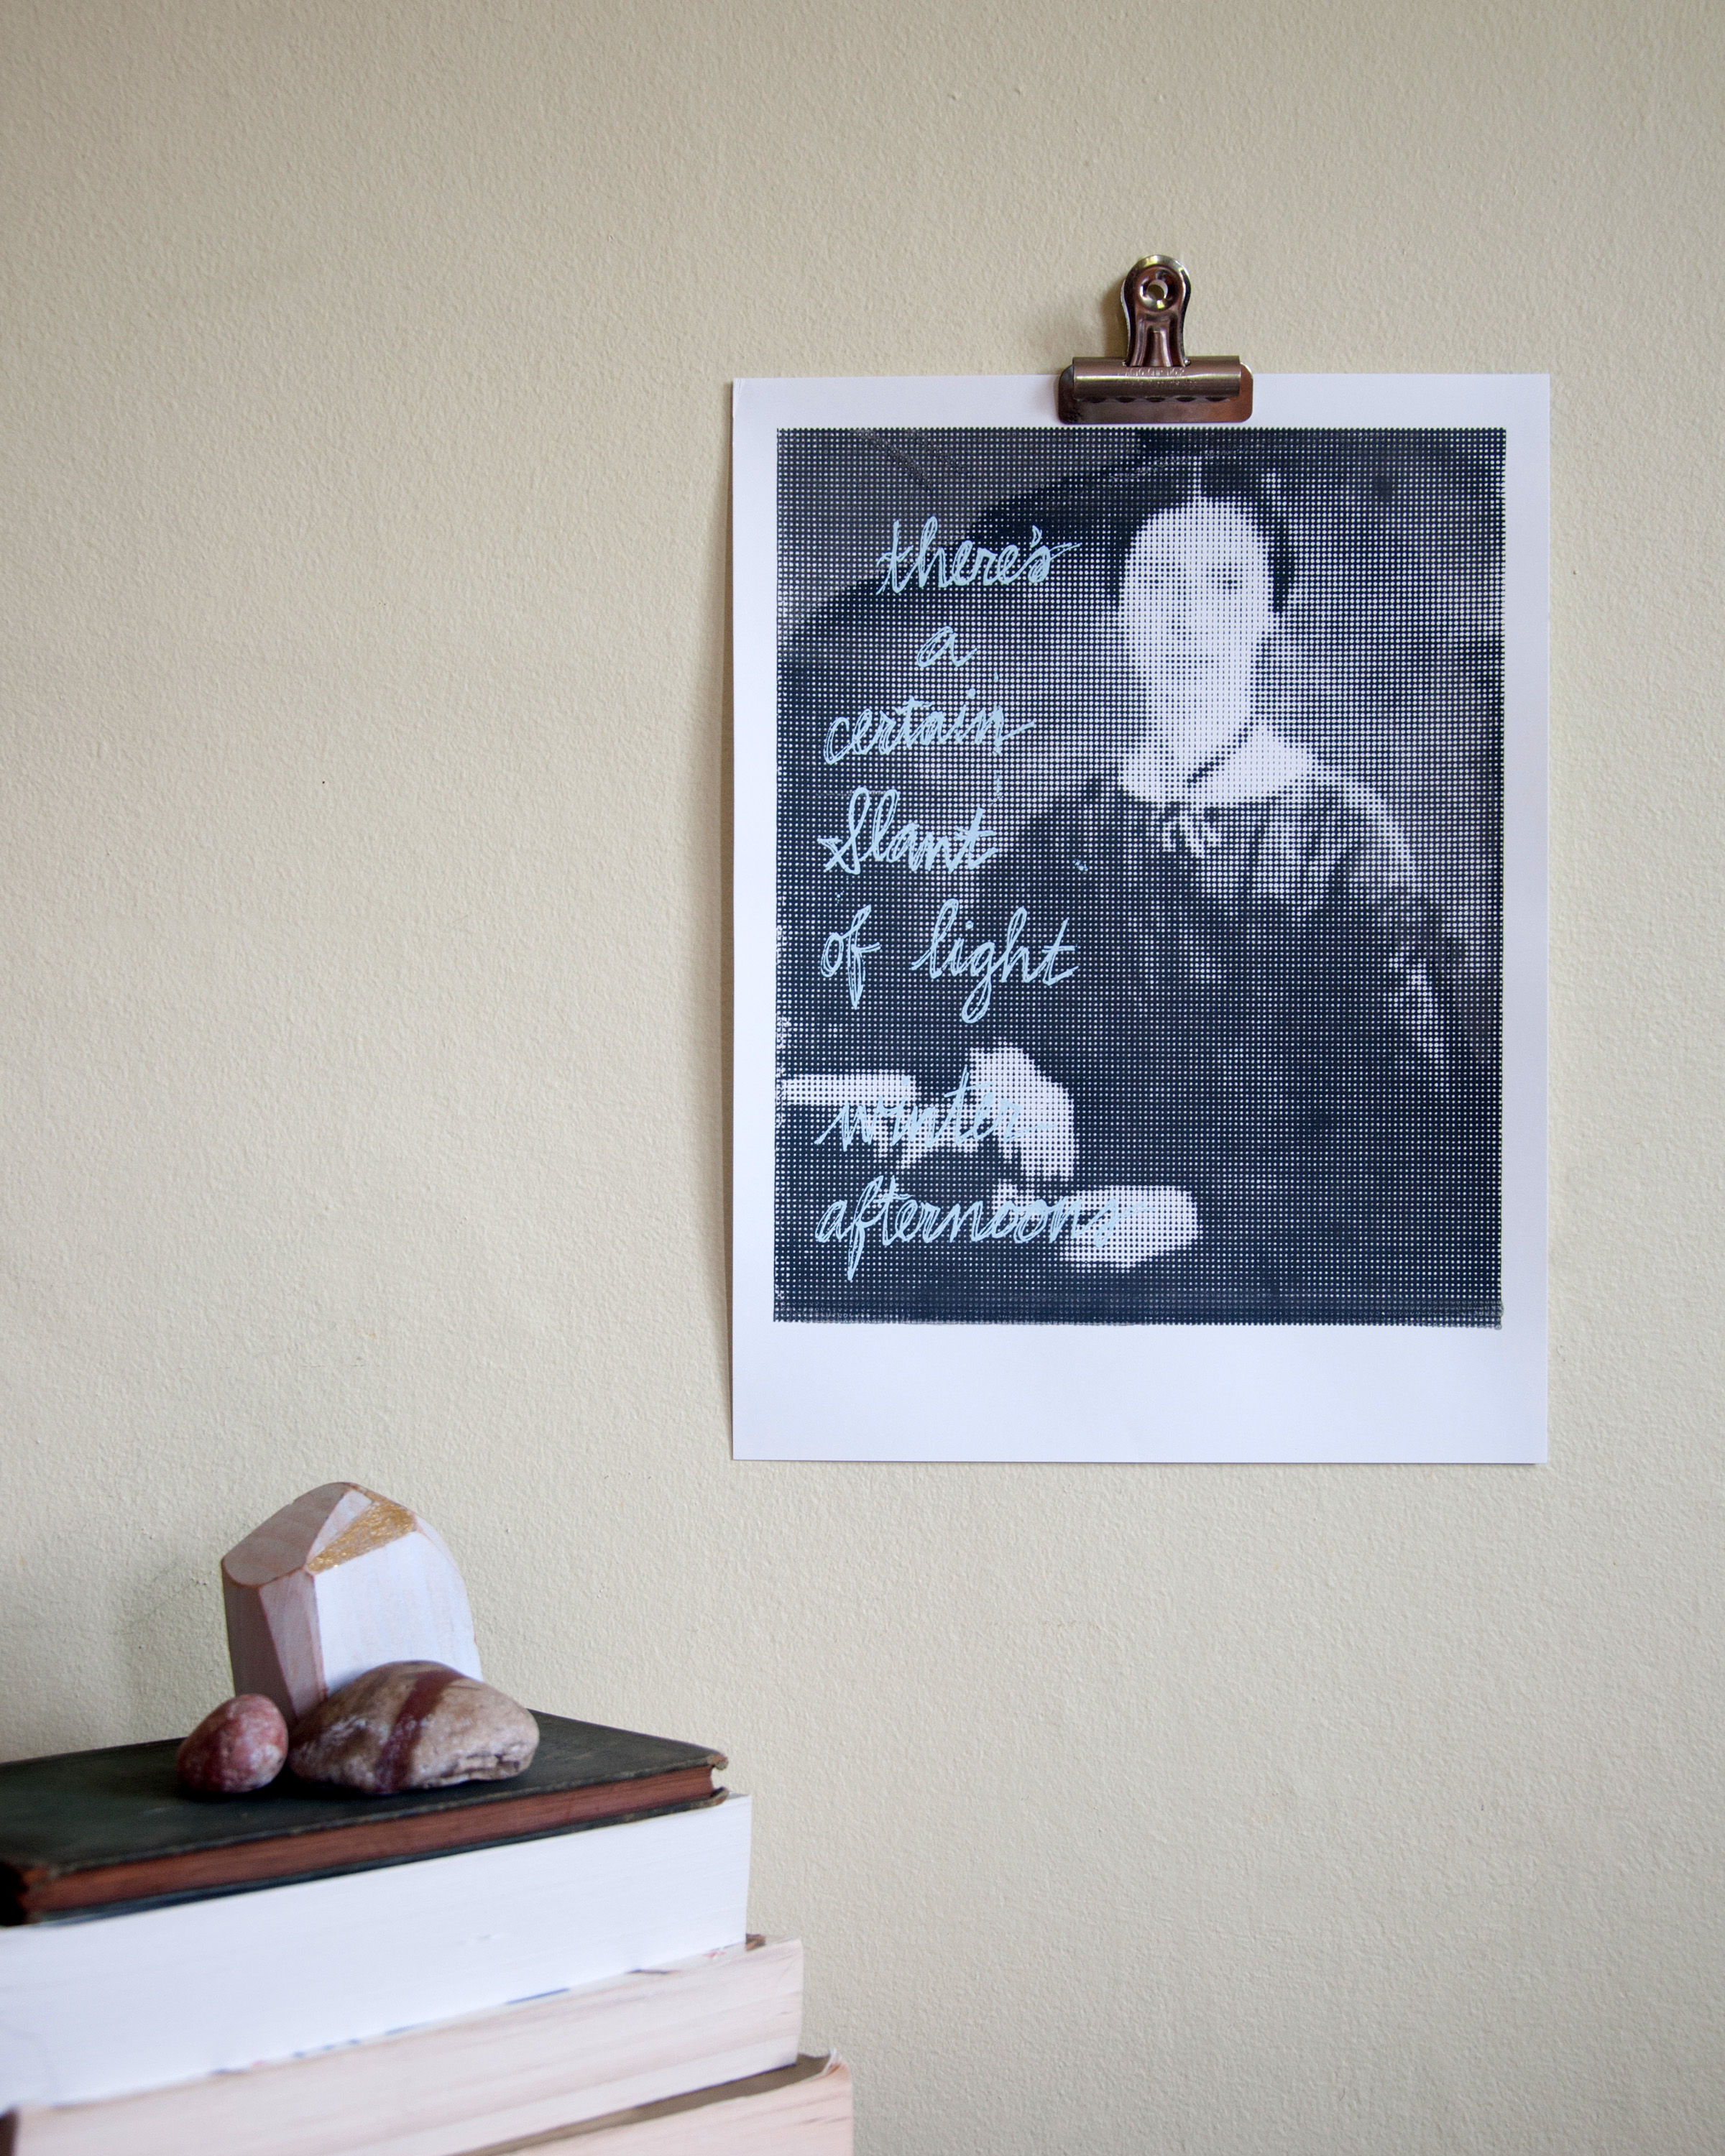 there's
a
certain
Slant
of light
winter
afternoons